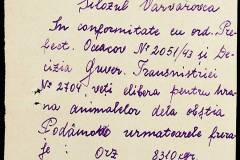 Silozul Varvarovca
In conformitate cu ord. Pre-
fect. Oceacov Nº 2051/43 și De-
cizia Guver. Transnistriei
Nº 2704, veți elibera pentru hra-
na animalelor dela obștia
urmatoarele fura-
je : Orz 8310 kgr